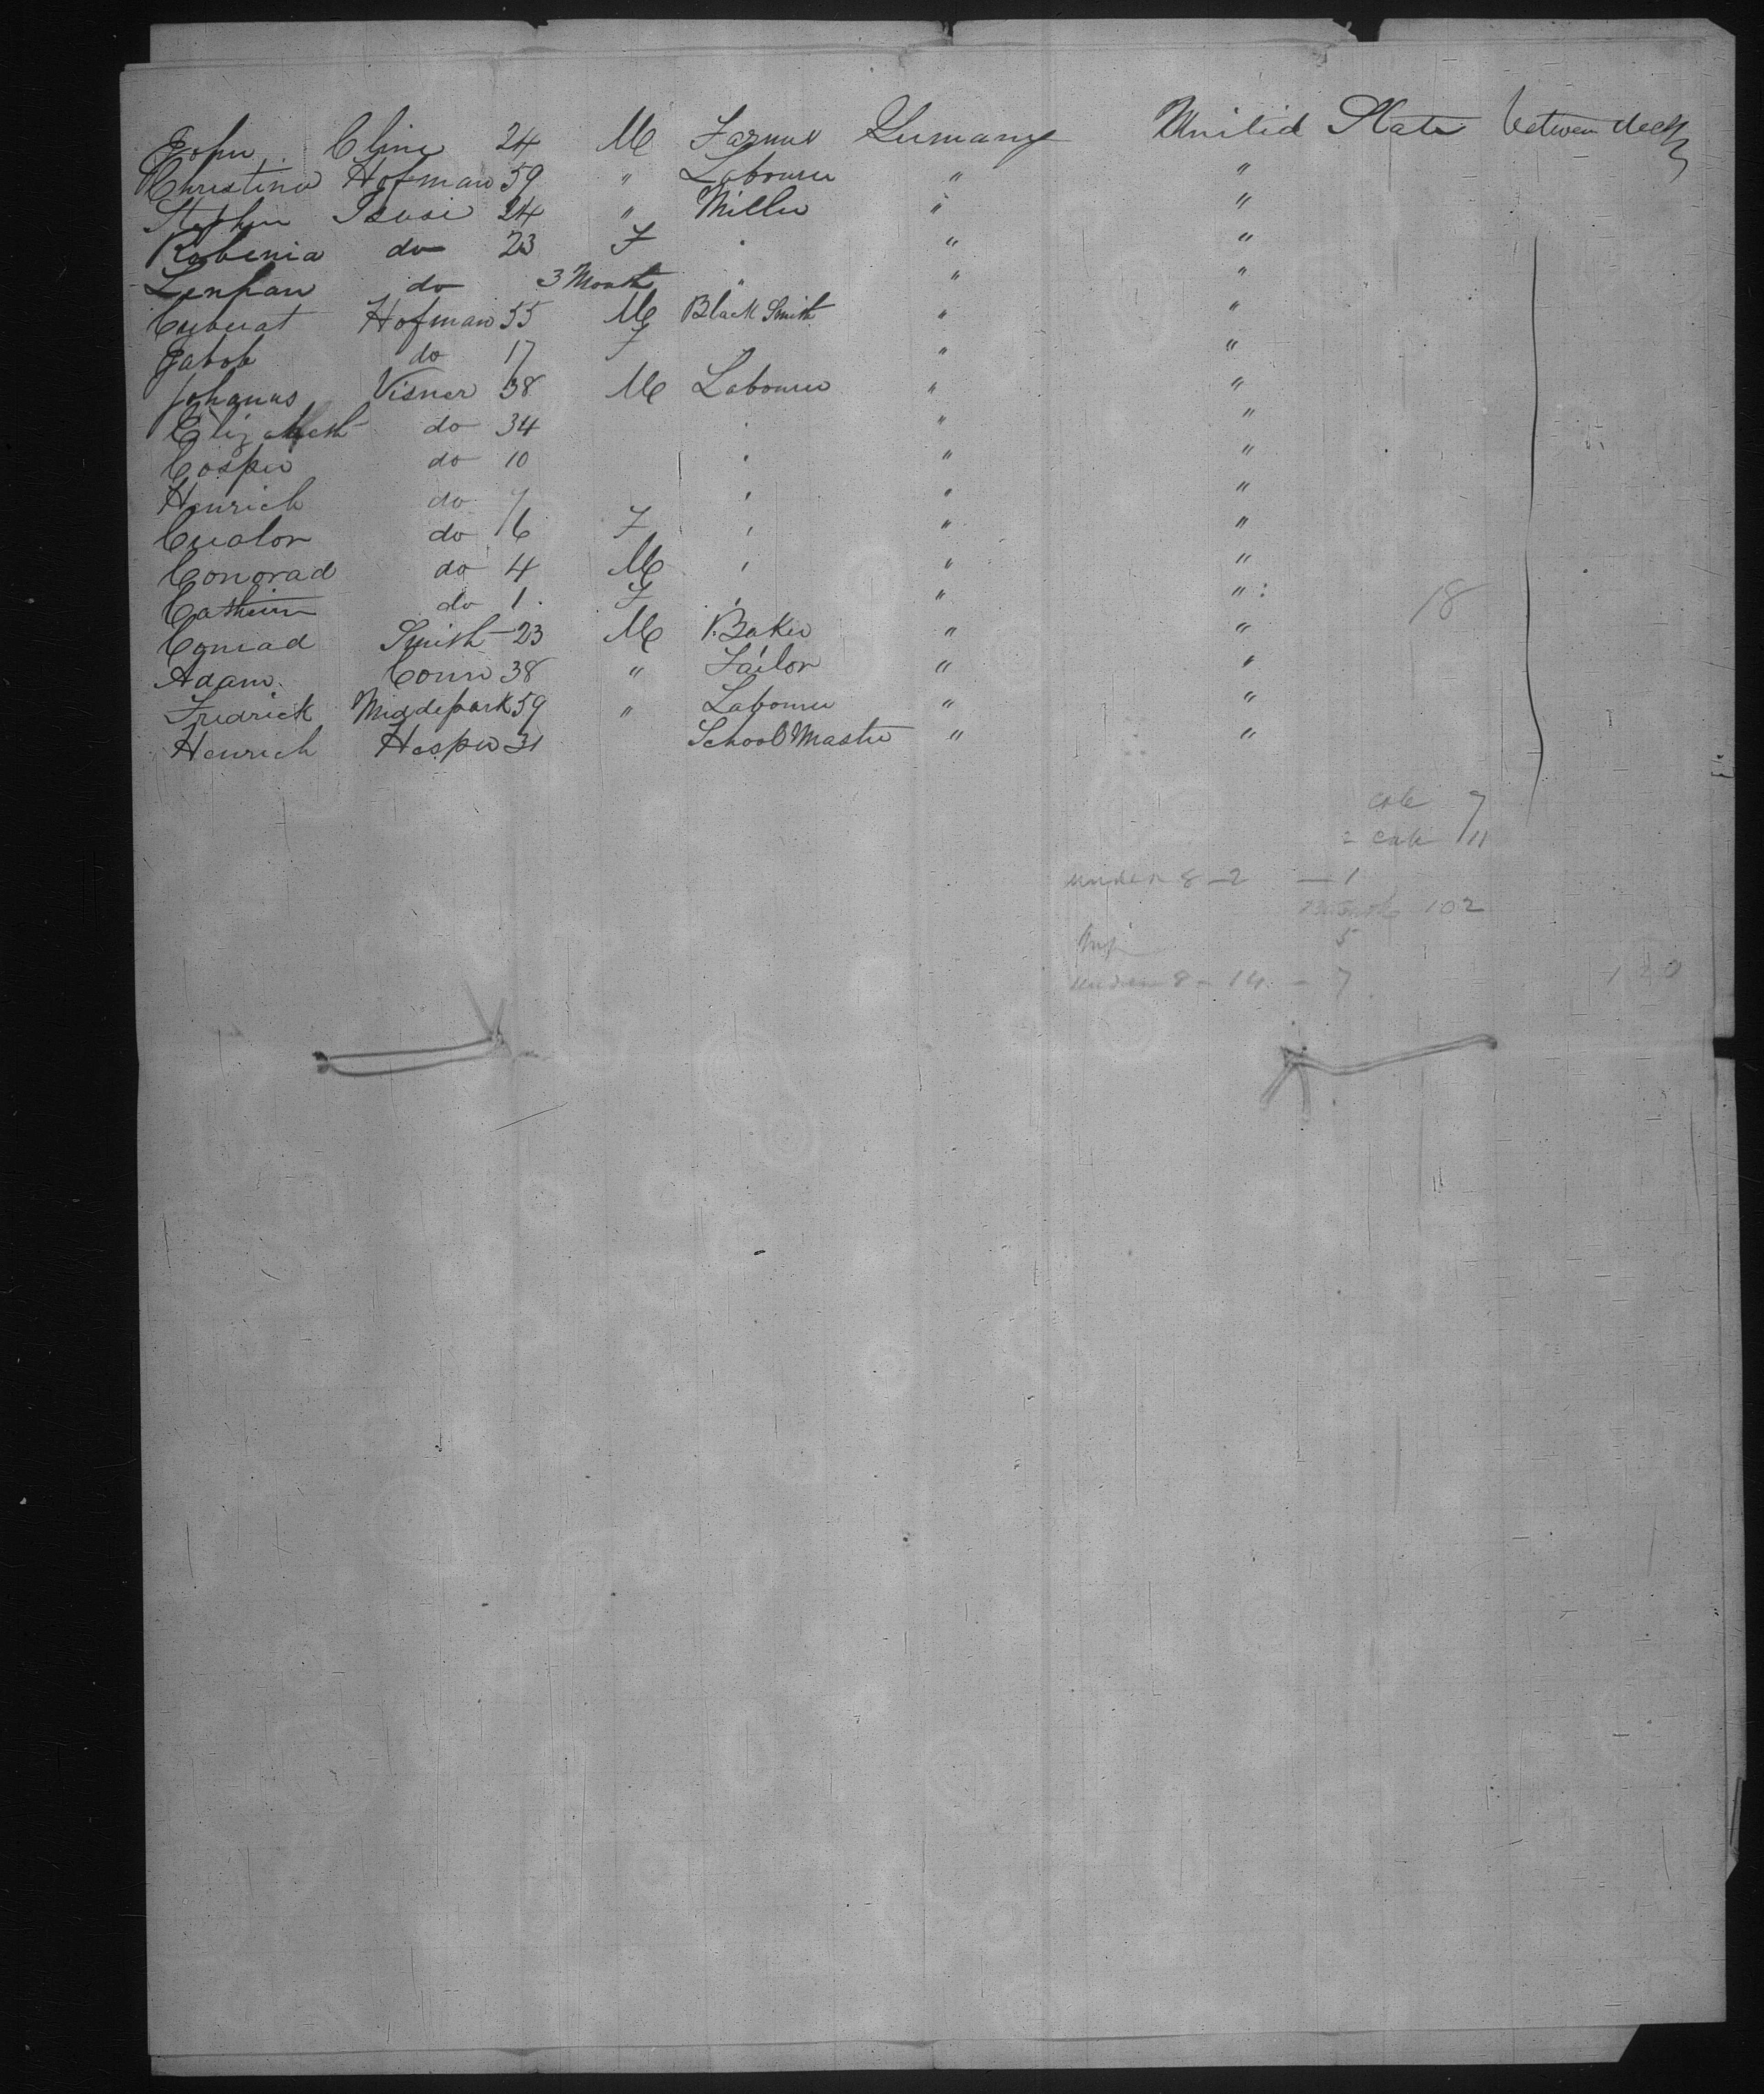 John Cline 24 M Farmer Germany United State between deck
Christina Hofman 59 " Labourer " "
Stephen 24 " Miller " "
Robenia do 23 F " "
do 3 Month " " "
Hofman 55 M Black Smith " "
Jakob do 17 F " "
Johanus Visner 38 M Labourer " "
Elizabeth do 34 " "
Casper do 10 " "
Henrich do 7 " "
do 6 F " "
Conorad do 4 M " "
do 1 F " "
18
Conrad Smith 23 M Baker " "
Adam 38 " Tailor " "
Fredrick Middepark 59 " Labourer " "
Henrich Hesper 31 School Master " "
7
11
under 8 - 2 - 1
102
5
under 8 - 14 - 7
120